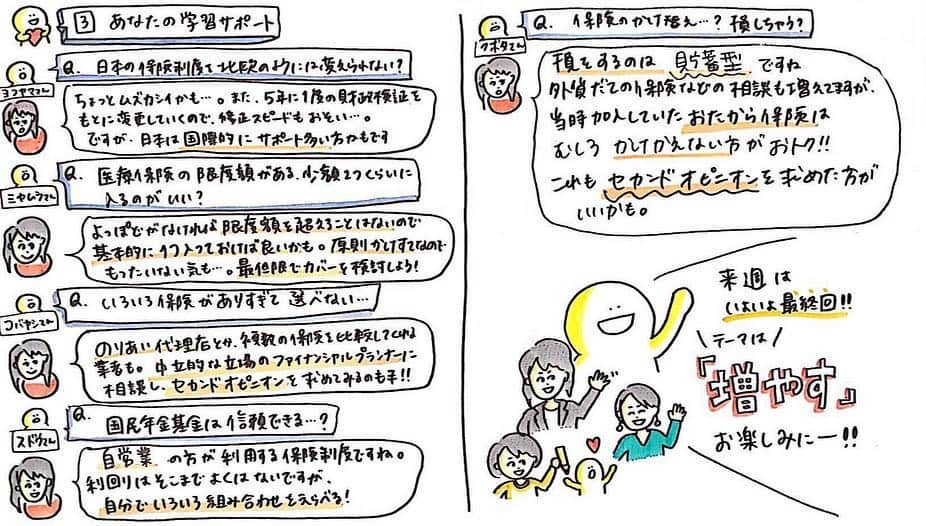 3 あなたの学習サポート
Q. 日本の保険制度て北欧のようには変えられない?
ヨコヤマさん
ちょっとムズカシイかも…。また、5年に1度の財政検証を
もとに変更していくので、修正スピードもおそい…。
ですが、日本は国際的にサポート多い方かもです
Q. 医療保険の限度額がある、少額2つくらいに
入るのがいい?
ミヤムラさん
よっぽどがなければ限度額を超えることはないので
基本的に1つ入っておけば良いかも。原則かけすてなので
もったいない気も…。最低限でカバーを検討しよう!
Q. いろいろ保険がありすぎて選べない…
コバヤシさん
のりあい代理店とか、複数の保険を比較してくれる
業者も。中立的な立場のファイナンシャルプランナーに
相談し、セカンドオピニオンを求めてみるのも手!!
Q. 国民年金基金は信頼できる…?
スドウさん
自営業の方が利用する保険制度ですね。
利回りはそこまでよくはないですが、
自分でいろいろ組み合わせをえらべる!
Q. 保険のかけ替え…?損しちゃう?
クボタさん
損をするのは貯蓄型ですね
外貨だての保険などの相談も増えてますが、
当時加入していたおたから保険は
むしろかけかえない方がおトク!!
これもセカンドオピニオンを求めた方が
いいかも。
来週は
いよいよ最終回!!
テーマは
「増やす」
お楽しみにー!!